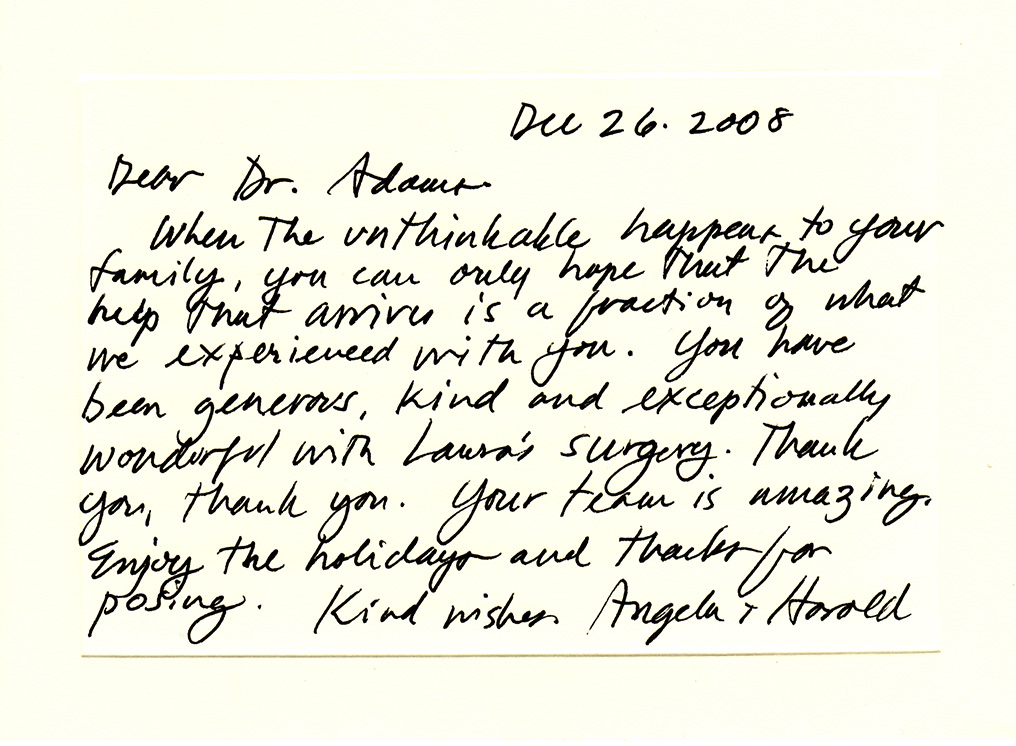 Dec 26. 2008
Dear Dr. Adams.
When the unthinkable happens to your
family, you can only hope that the
help that arrives is a fraction of what
we experienced with you. You have
been generous, kind and exceptionally
wonderful with Laura's surgery. Thank
you, thank you. Your team is amazing.
Enjoy the holidays and thanks for
posing. Kind wishes Angela + Harold